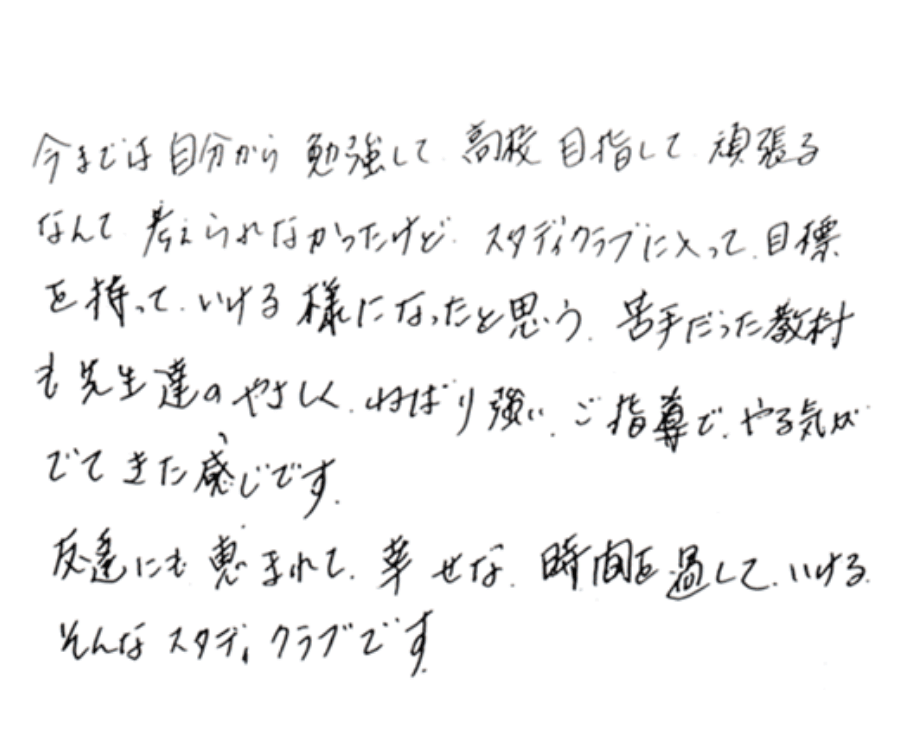 今までは自分から勉強して、高校目指して、頑張る
なんて考えられなかったけど、スタディクラブに入って、目標
を持って、いける様になったと思う。苦手だった教材
も先生達のやさしく、ねばり強い、ご指導で、やる気が
でてきた感じです。
友達にも恵まれて、幸せな、時間を過して、いける、
そんなスタディクラブです。